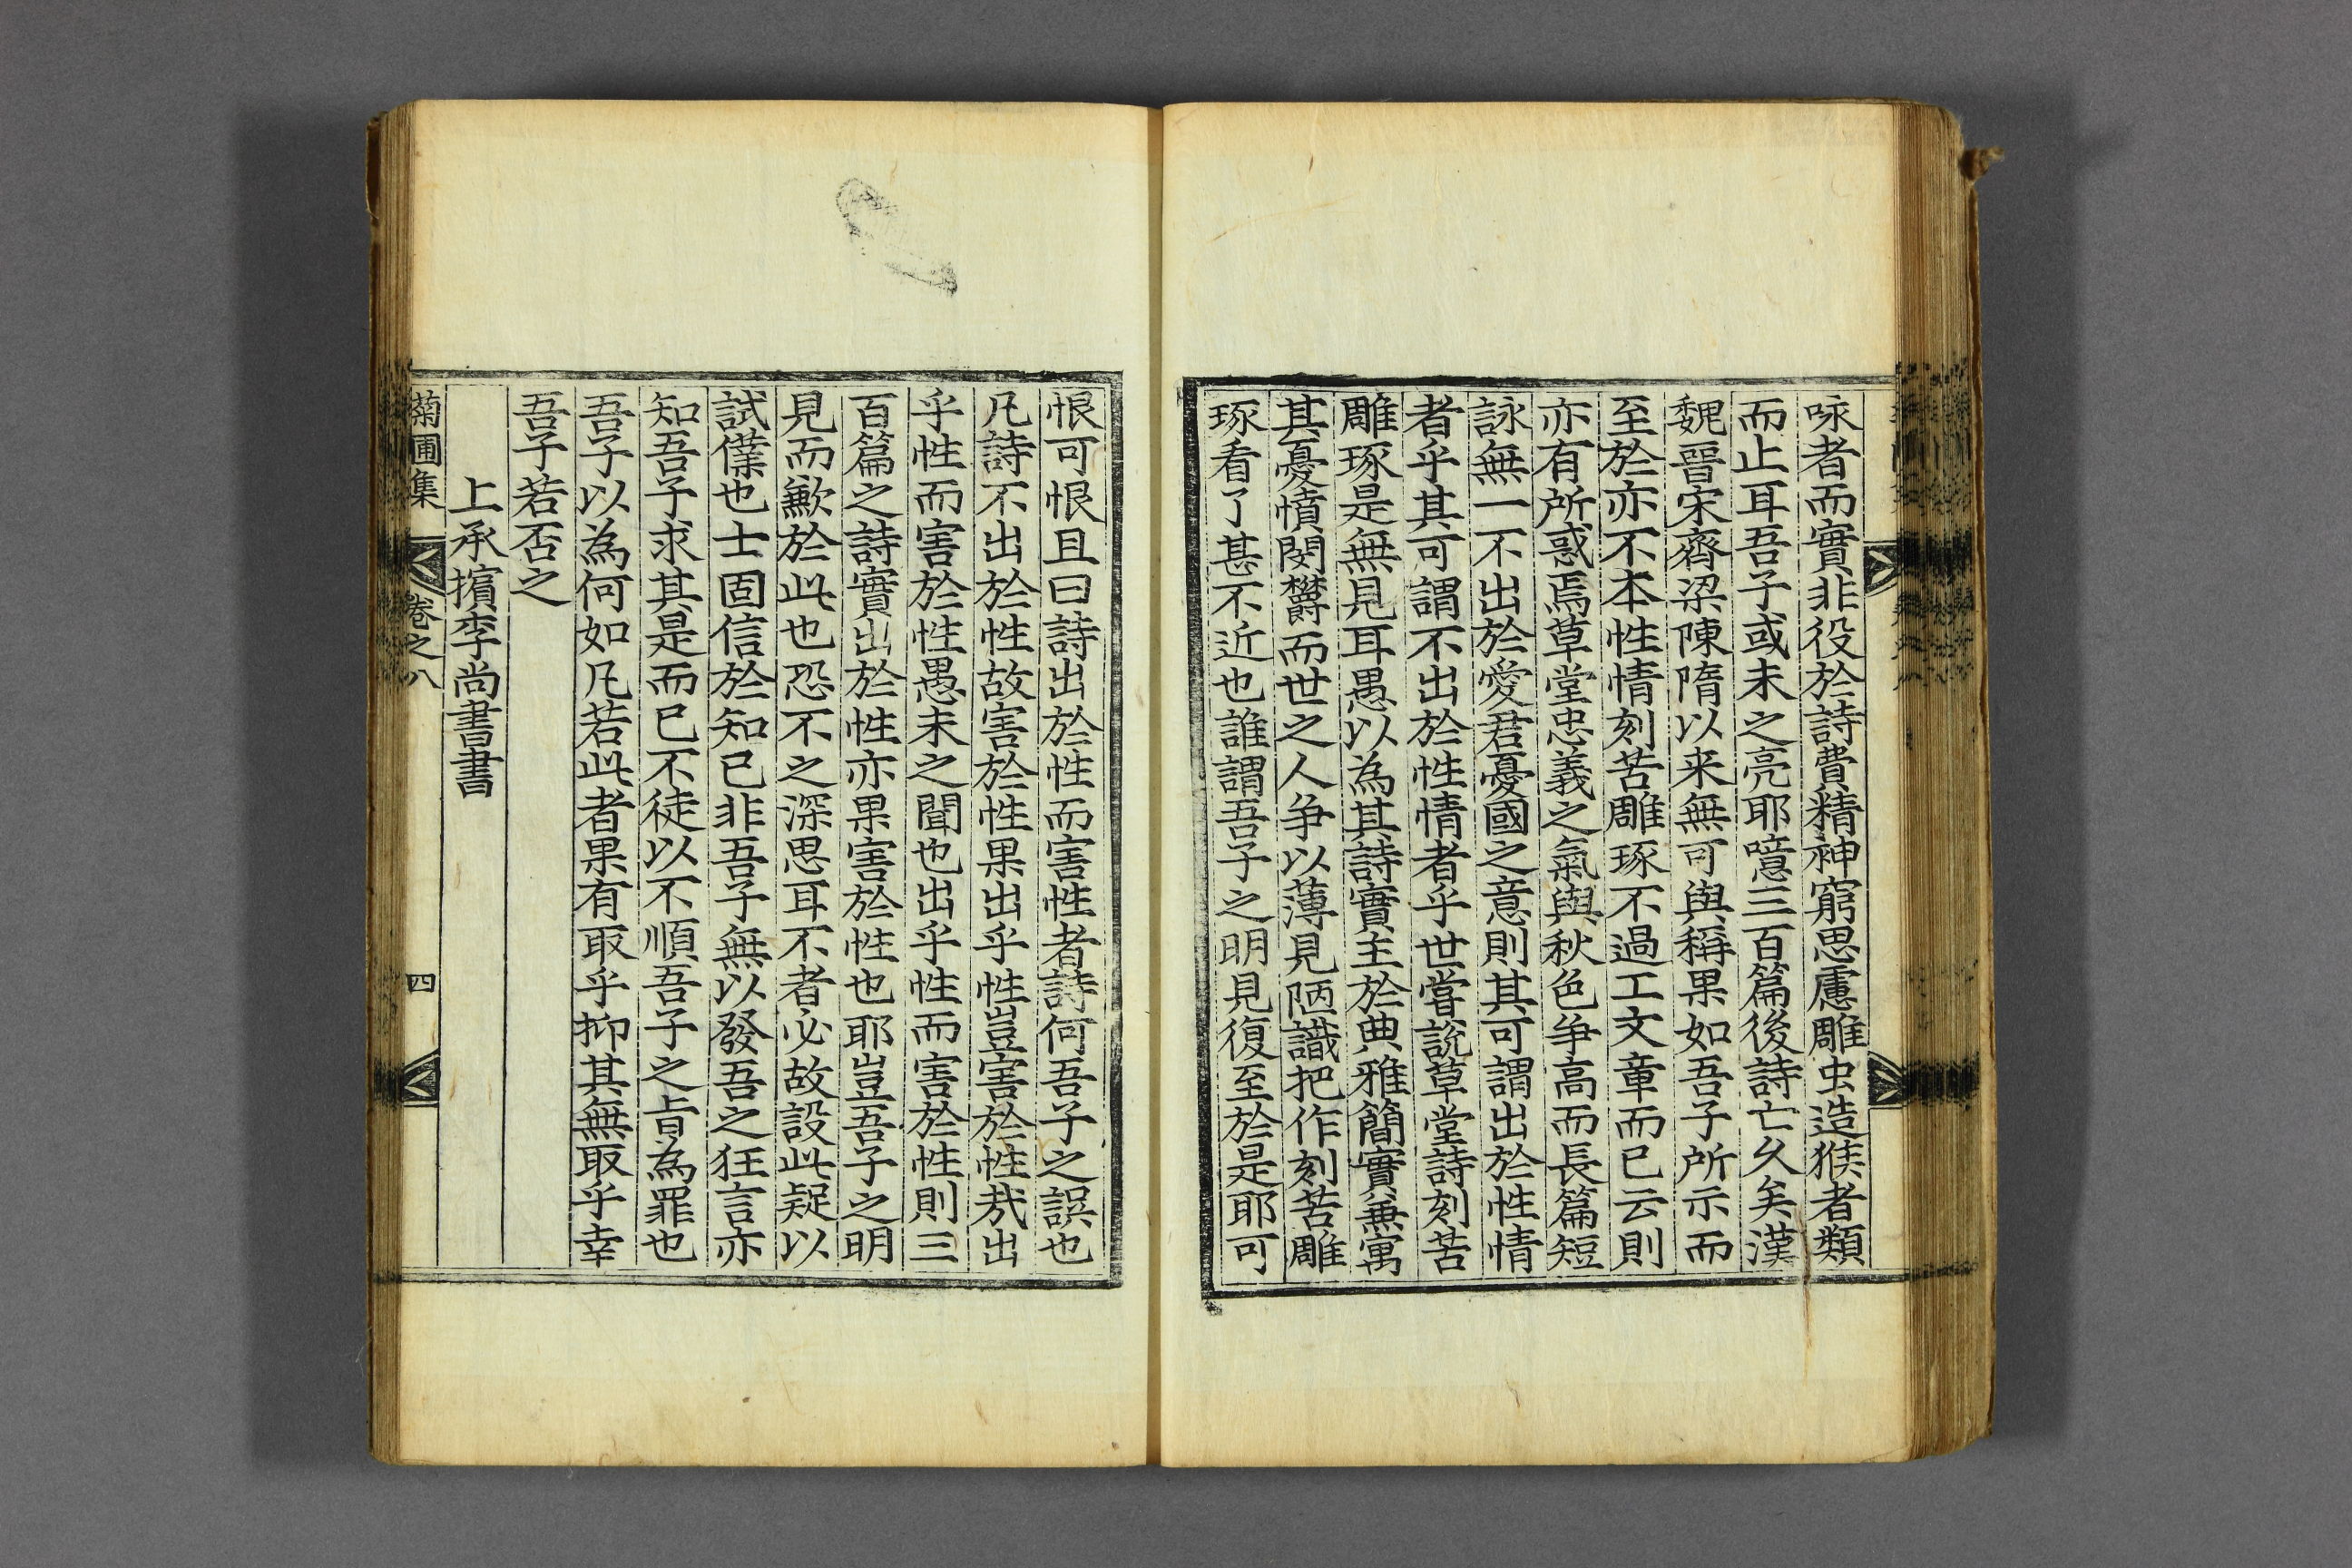 咏者而實非役於詩費精神窮思慮雕虫造猴者類
而止耳吾子或未之亮耶噫三百篇後詩亡久矣漢
魏晉宋齊梁陳隋以来無可與稱果如吾子所示而
至於亦不本性情刻苦雕琢不過工文章而已云則
亦有所惑焉草堂忠義之氣與秋色爭高而長篇短
詠無一不出於愛君憂國之意則其可謂出於性情
者乎其可謂不出於性情者乎世嘗說草堂詩刻苦
雕琢是無見耳愚以為其詩實主於典雅簡實兼寓
其憂憤閔欝而世之人爭以薄見陋識把作刻苦雕
琢看了甚不近也誰謂吾子之明見復至於是耶可
恨可恨且曰詩出於性而害性者詩何吾子之誤也
凡詩不出於性故害於性果出乎性豈害於性㦲出
乎性而害於性愚未之聞也出乎性而害於性則三
百篇之詩實出於性亦果害於性也耶豈吾子之明
見而歉於此也恐不之深思耳不者必故設此疑以
試僕也士固信於知己非吾子無以發吾之狂言亦
知吾子求其是而已不徒以不順吾子之旨為罪也
吾子以為何如凡若此者果有取乎抑其無取乎幸
吾子若否之
上承擯李尚書書
菊圃集 卷之八 四